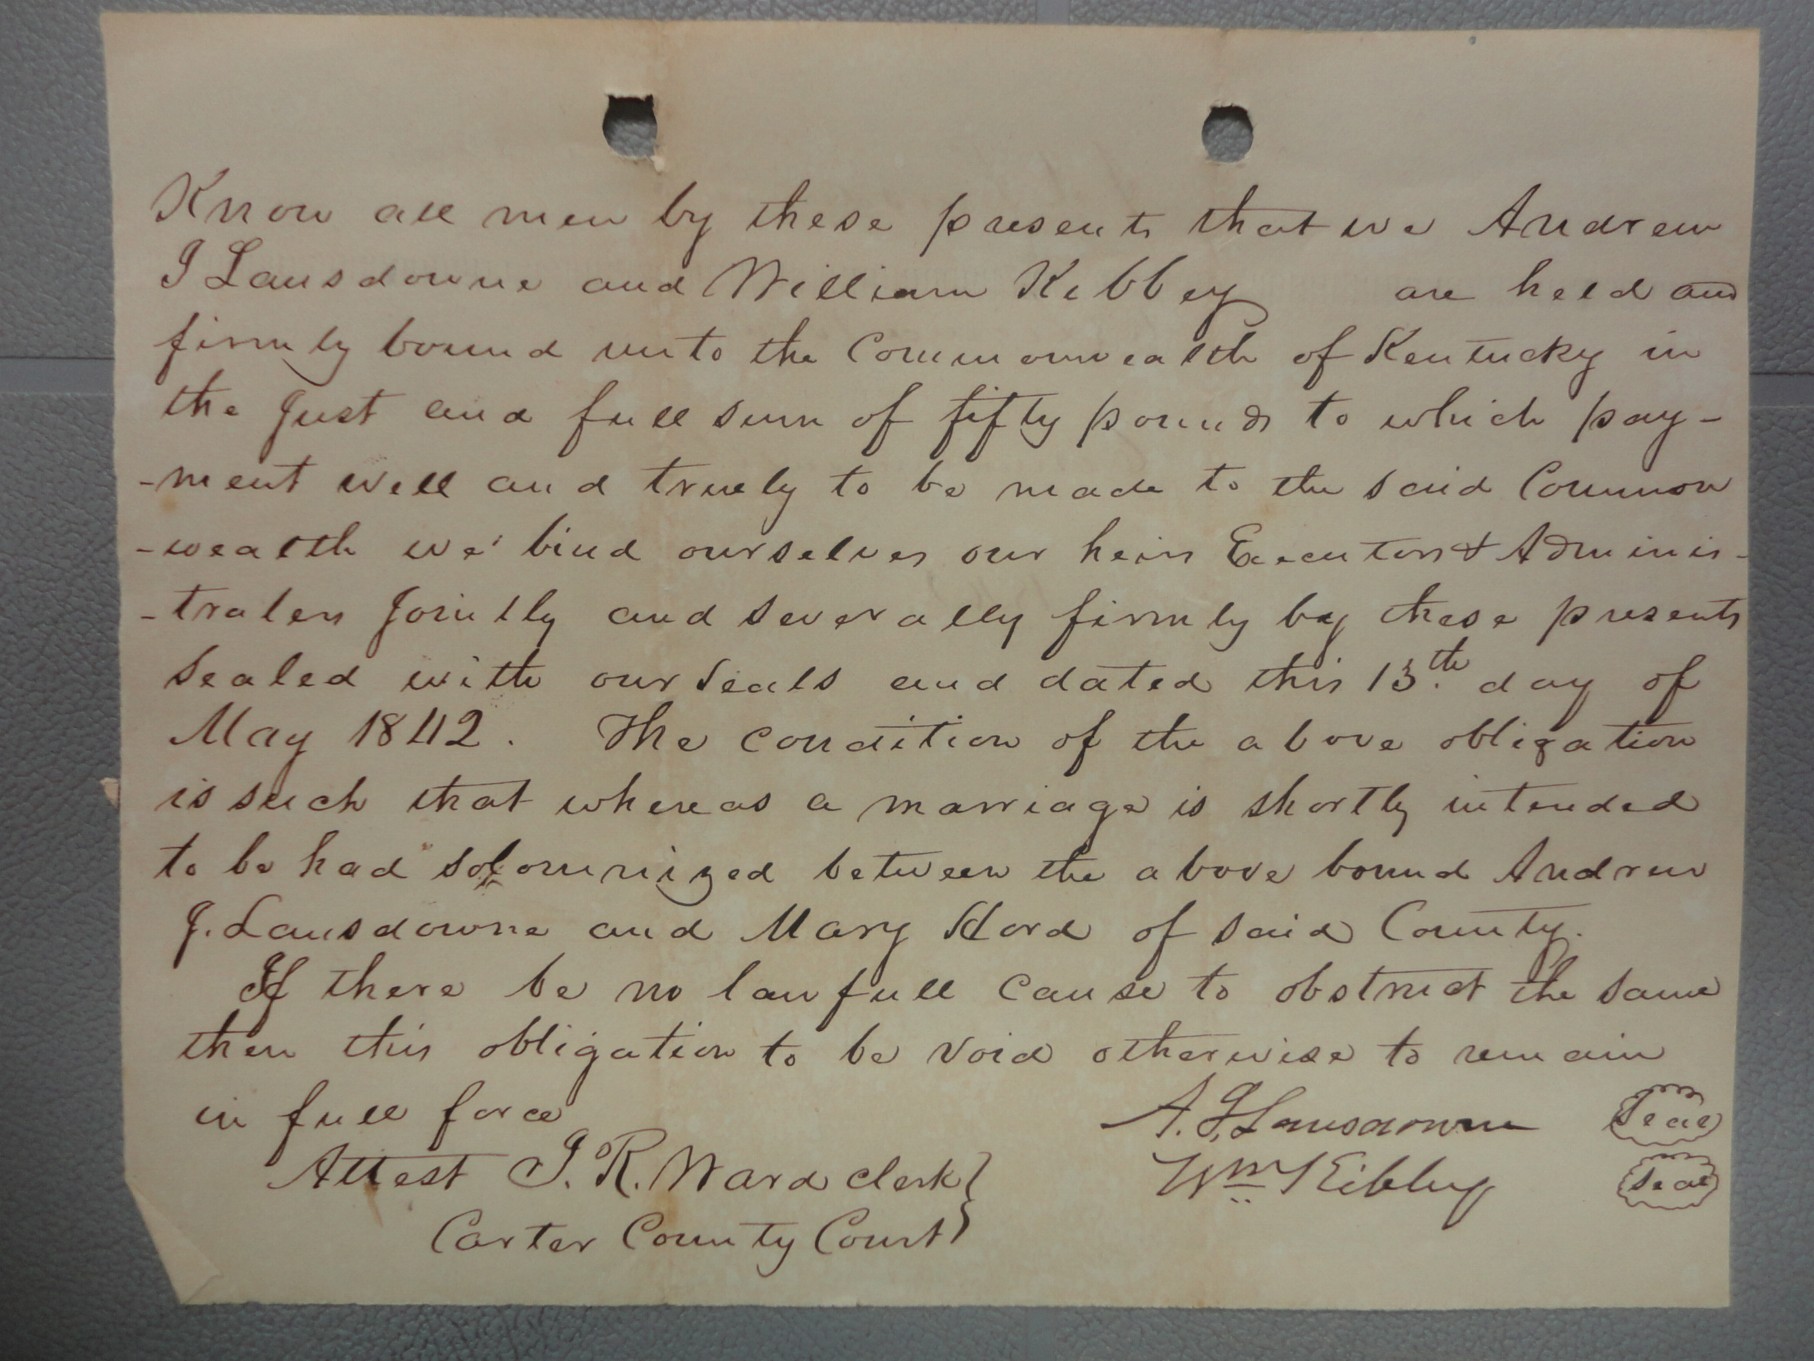 Know all men by these presents that we Andrew
J Lansdowne and William Kibbey are held and
firmly bound unto the Commonwealth of Kentucky in
the Just and full sum of fifty pounds to which pay-
-ment well and truely to be made to the said Common
-wealth we bind ourselves our heirs Executors & Adminis-
-traters Jointly and severally firmly by these presents
Sealed with our Seals and dated this 13.th day of
May 1842. The condition of the above obligation
is such that whereas a marriage is shortly intended
to be had solomnized between the above bound Andrew
J. Lansdowne and Mary Hord of said County.
If there be no lawfull cause to obstruct the same
then this obligation to be void otherwise to remain
in full force
A. J. Lansdowne Seal
Attest J. R. Ward clerk }
Wm Kibbey Seal
Carter County Court